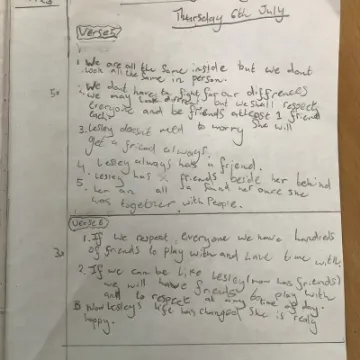 Thursday 6th July
Verse 5
1. We are all the same inside but we dont
look all the same in person.
2. We dont have to fight for our differences
we may look different but we shall respect
everyone and be friends at least 1 friend
each
5x
3. Lesley doesnt need to worry she will
get a friend always.
4. Lesley always has a friend.
5. Lesley has friends beside her behind
her all she
was together with people.
Verse 6
3x
1. If we respect everyone we have hundreds
of friends to play with and have time with.
2. If we can be like Lesley (now has friends)
we will have friends to play with
and to respect at any time of day.
3 Now Lesley's life has changed she is really
happy.